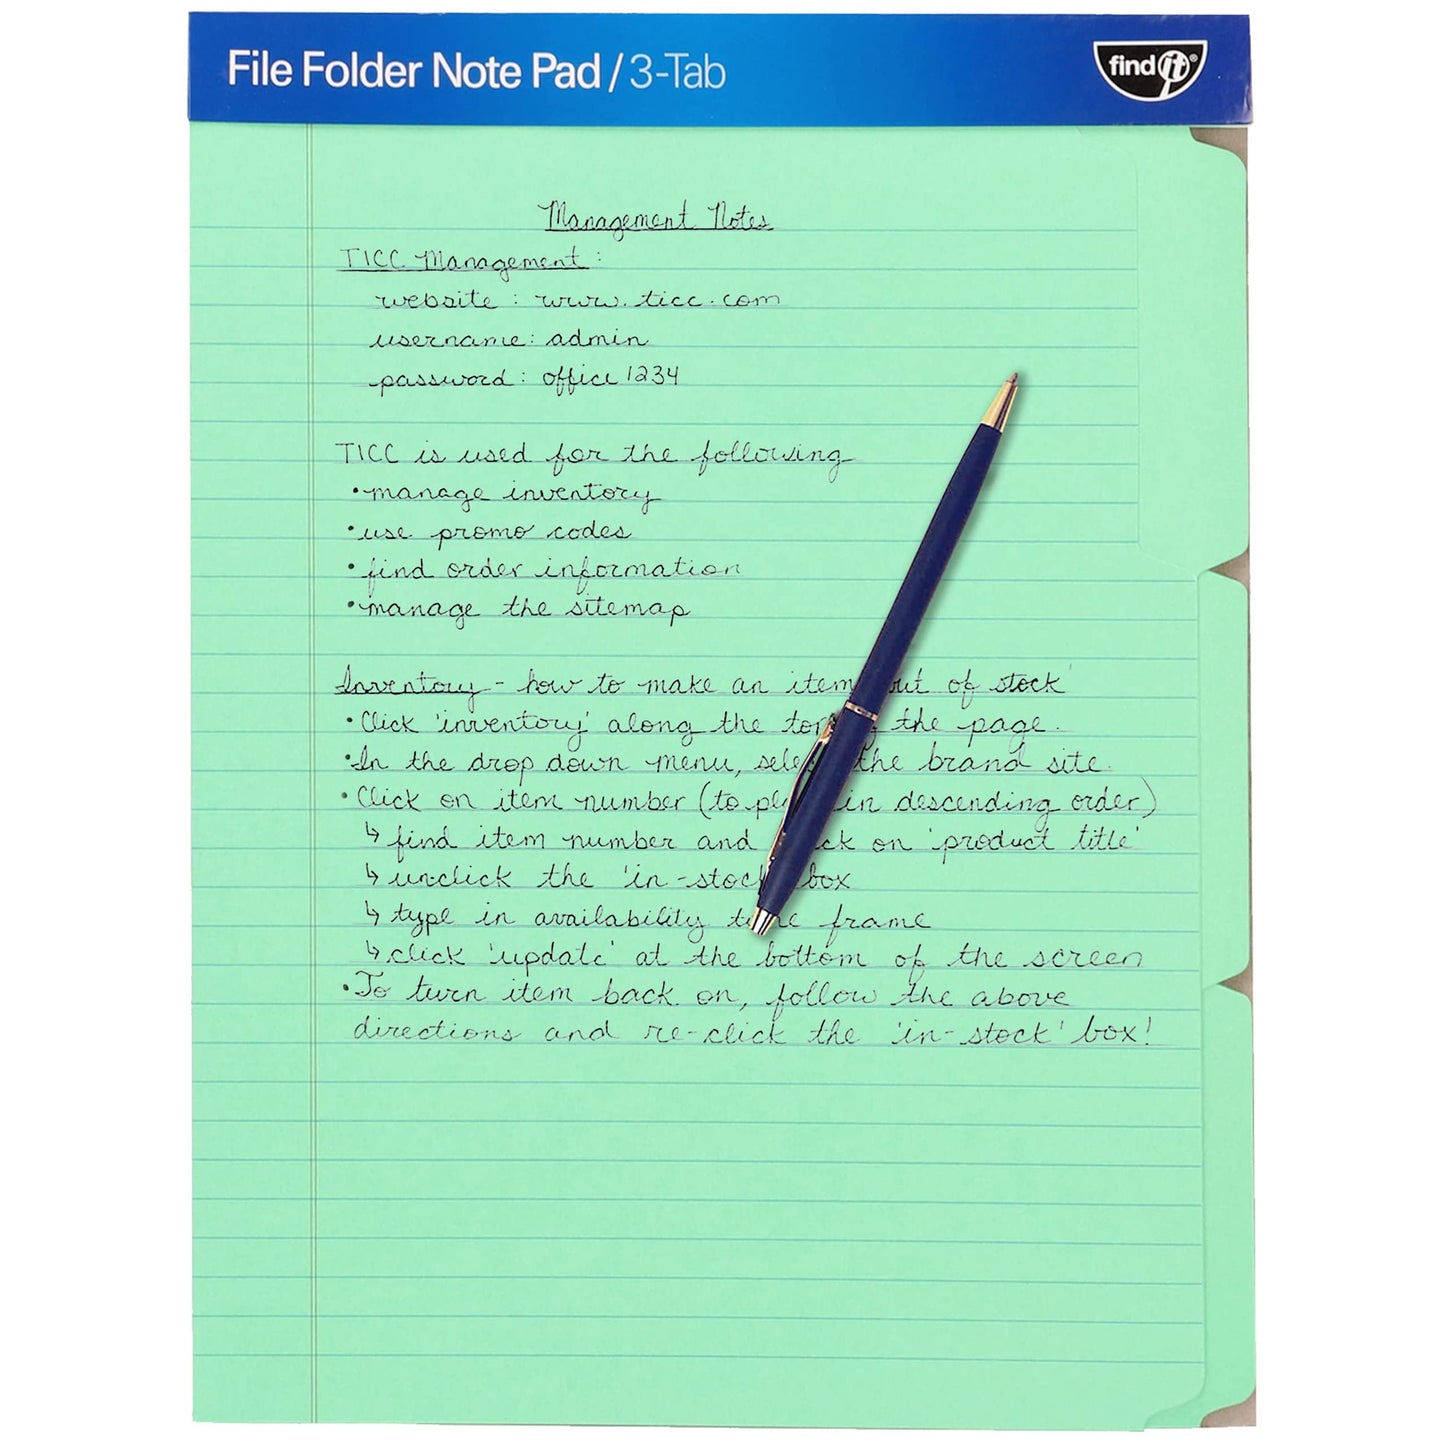 File Folder Note Pad / 3-Tab
find it®
Management Notes
TICC Management:
website: www.ticc.com
username: admin
password: office1234
TICC is used for the following
• manage inventory
• use promo codes
• find order information
• manage the sitemap
Inventory - how to make an item out of stock
• Click 'inventory' along the the page.
• In the drop down menu, the brand site.
• Click on item number (to in descending order)
↳ find item number and on 'product title'
↳ unclick the 'in-stock' box
↳ type in availability frame
↳ click 'update' at the bottom of the screen
• To turn item back on, follow the above
directions and re-click the 'in-stock' box!